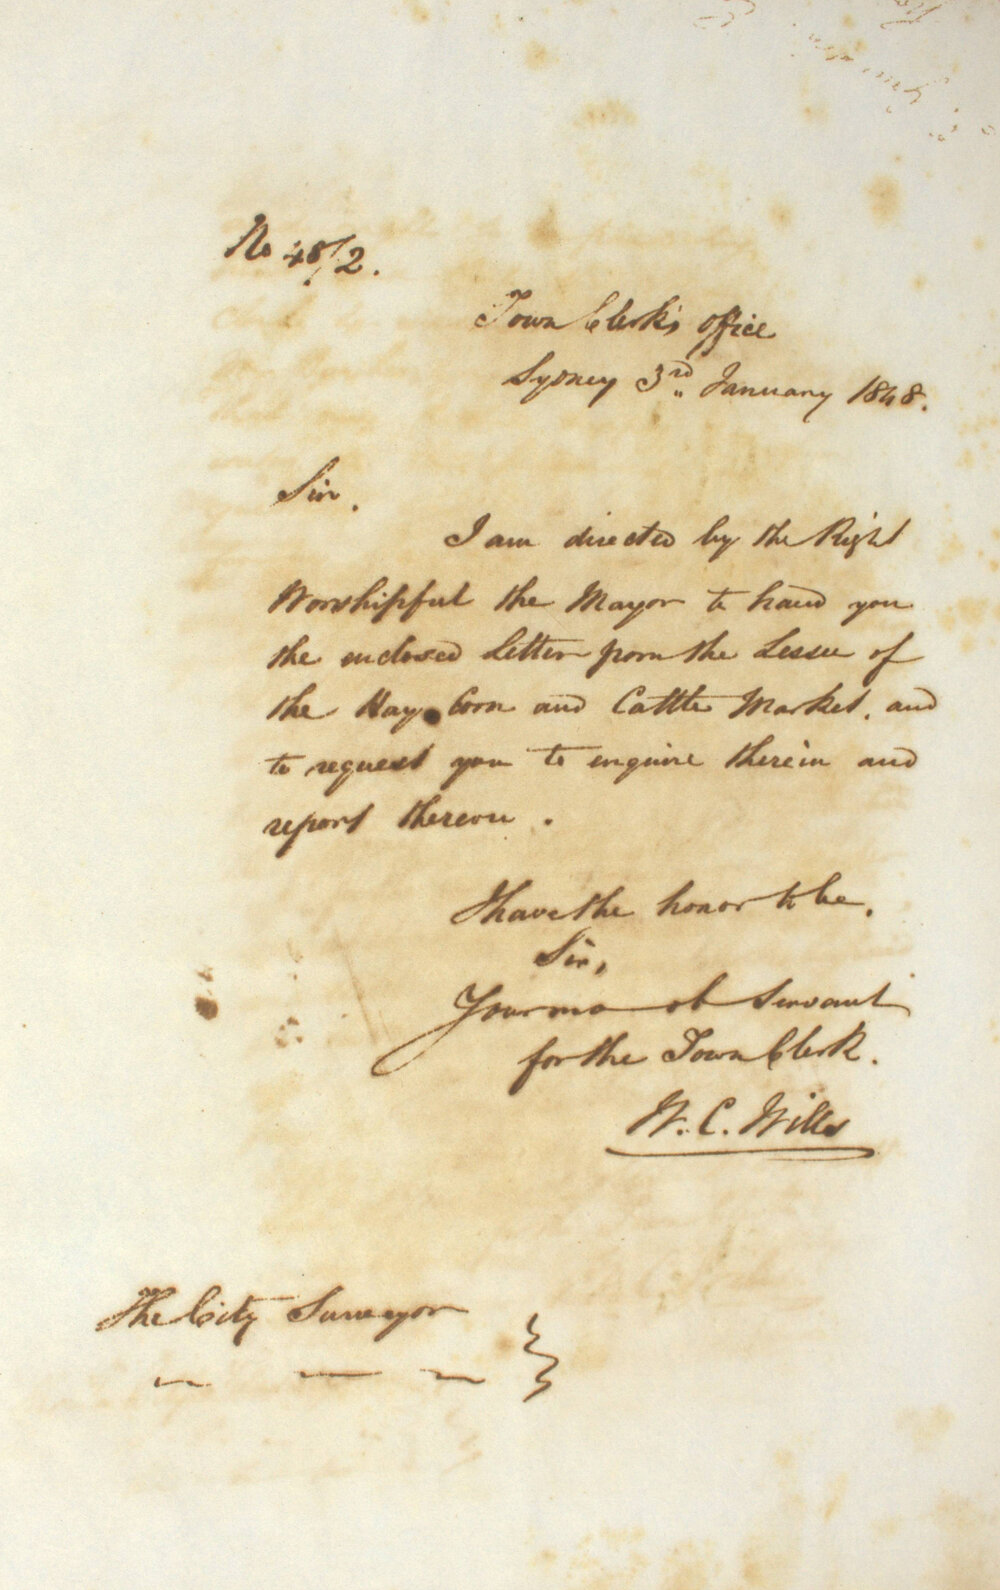 No 48/2.
Town Clerk's Office
Sydney 3rd January 1848.
Sir.
I am directed by the Right
Worshipful the Mayor to hand you
the enclosed Letter from the Lessee of
the Hay Corn and Cattle Market, and
to request you to enquire therein and
report thereon.
I have the honor to be,
Sir,
Your mo ob Servant
for the Town Clerk.
W. C. Wills
The City Surveyor